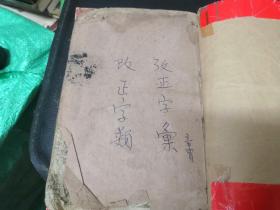 改正字彙
改正字類